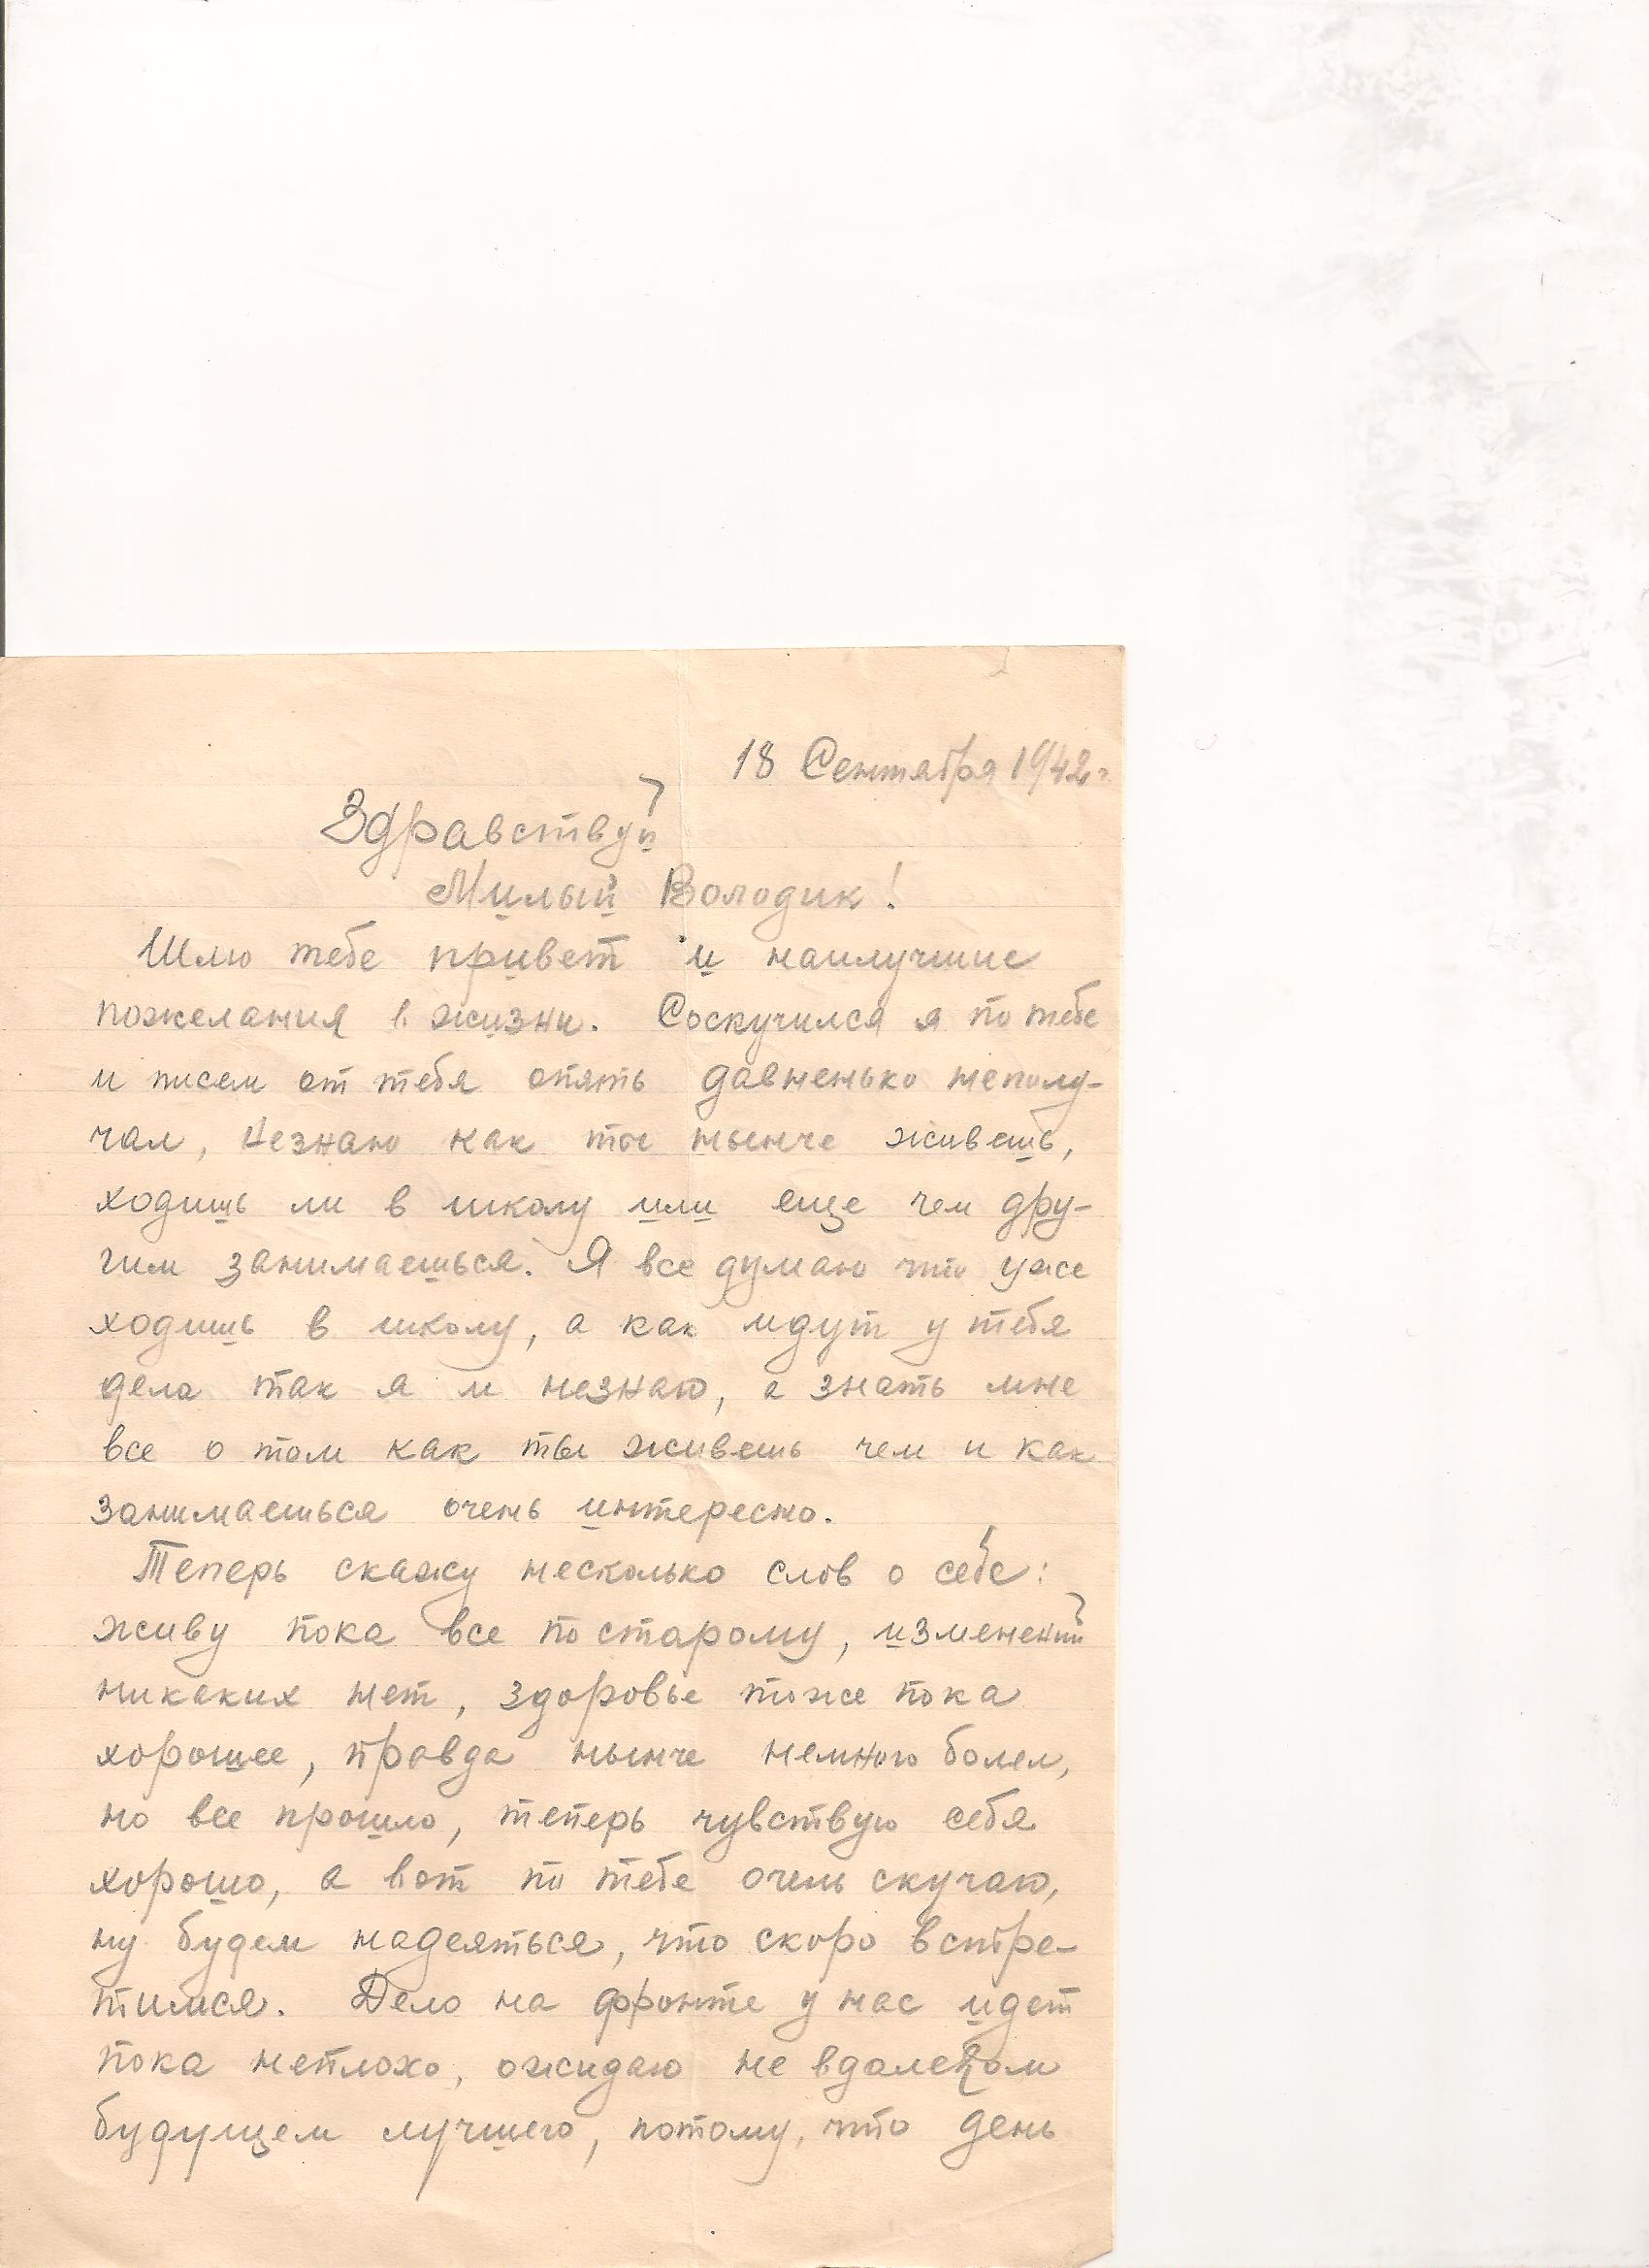 18 Сентября 1942 г.
Здравствуй
Милый Володик!
Шлю тебе привет и наилучшие
пожелания в жизни. Соскучился я по тебе
и писем от тебя опять давненько неполу-
чал, незнаю как ты нынче живешь,
ходишь ли в школу или еще чем дру-
гим занимаешься. Я все думаю что уже
ходишь в школу, а как идут у тебя
дела так я и незнаю, а знать мне
все о том как ты живешь чем и как
занимаешься очень интересно.
Теперь скажу несколько слов о себе:
живу пока все по старому, изменений
никаких нет, здоровье тоже пока
хорошее, правда нынче немного болел,
но все прошло, теперь чувствую себя
хорошо, а вот по тебе очень скучаю,
ну будем надеяться, что скоро встре-
тимся. Дело на фронте у нас идет
пока неплохо, ожидаю не вдалеком
будущем лучшего, потому, что день